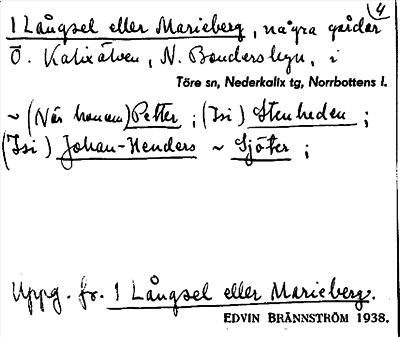 4
1 Långsel eller Marieberg, några gårdar
Ö. Kalixälven, N. Bondersbyn, i
Töre sn, Nederkalix tg, Norrbottens l.
~ (När honom) Petter ; (Isi) Stenheden ;
(Isi) Johan-Henders ~ Sjöter ;
Uppg. fr. 1 Långsel eller Marieberg.
EDVIN BRÄNNSTRÖM 1938.